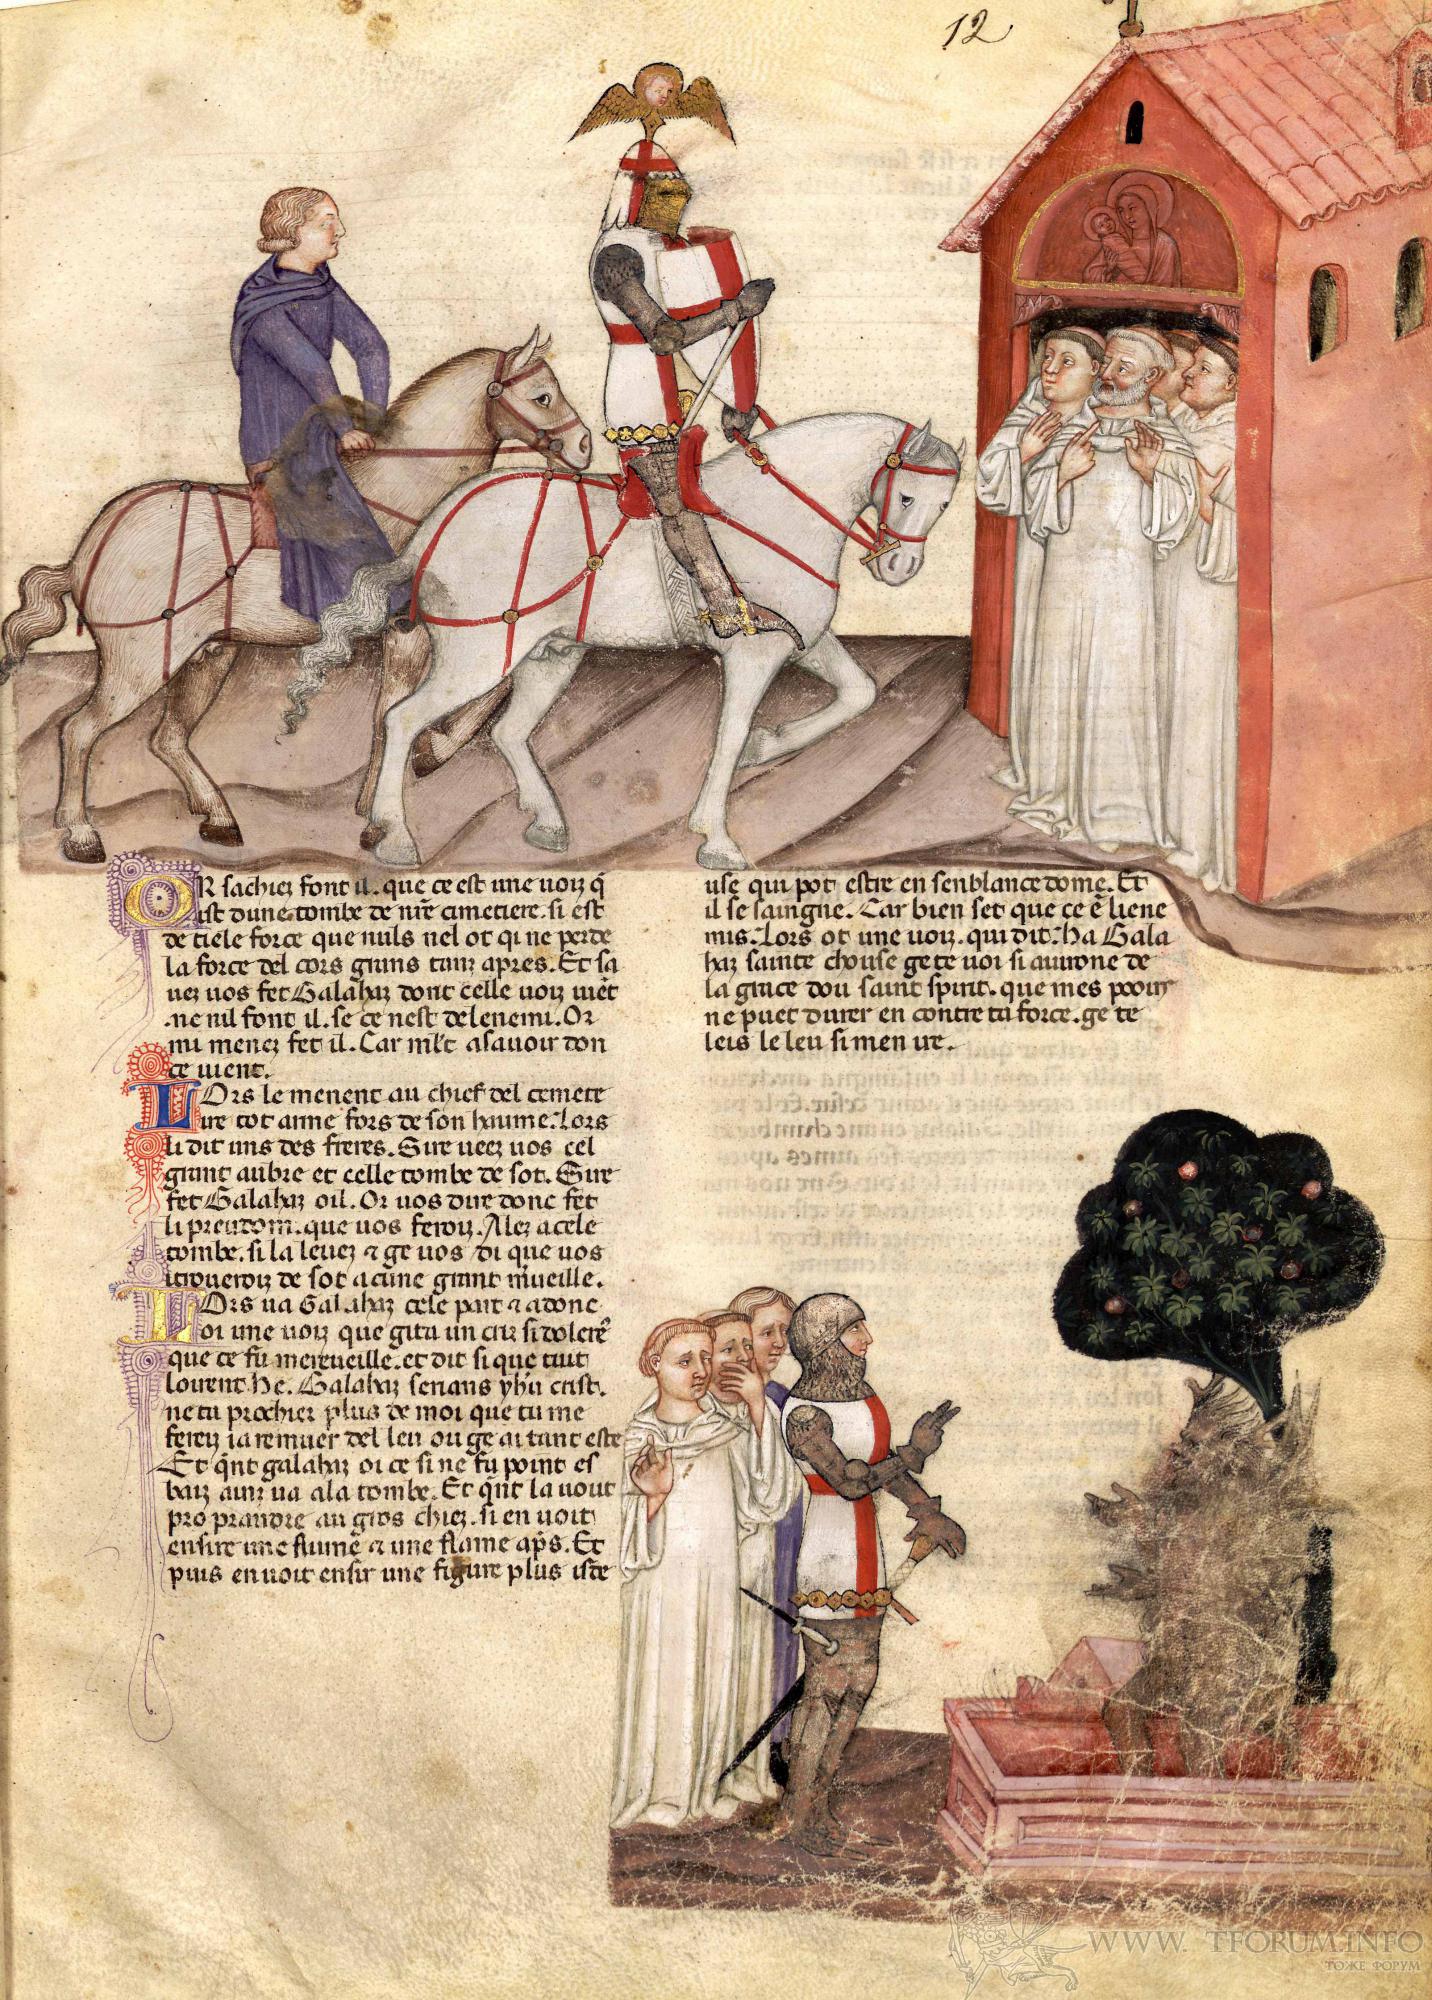 12
OR sachiez font il. que ce est une uoiz q̄
ist dune tombe de nr̄e cimetiere. si est
de tiele force que nuls nel ot qi ne perde
la force del cors grans tanz apres. Et sa
uez uos fet Galahaz dont celle uoiz uiēt
.ne nil font il. se ce nest de lenemi. Or
mi menez fet il. Car ml't a sauoir don
ce uient.
LOrs le menent au chief del cemete
ire tot arme fors de son haume. Lors
li dit uns des freres. Sire ueez uos cel
grant aubre et celle tombe de sot. Sire
fet Galahaz oil. Or uos dire donc fet
li preudom. que uos feroiz. Alez a cele
tombe. si la leuez ⁊ ge uos di que uos
i troueroiz de sot acune grant m'ueille.
LOrs ua Galahaz cele part ⁊ adonc
oi une uoiz que gita un criz si dolerē
que ce fu merueille. et dit si que tuit
loirent. He. Galahaz serians yhū crist.
ne tu prochier plus de moi que tu me
feroiz ia remuer del leu ou ge ai tant este
Et qn̄t galahaz oi ce si ne fu point es
baiz ainz ua a la tombe. Et qn̄t la uout
pro prandre au gros chiez. si en uoit
ensire une flume ⁊ une flame ap̄s. Et
puis en uoit ensir une figure plus iste
use qui pot estre en senblance dome. Et
il se saingne. Car bien set que ce ē liene
mis. Lors ot une uoiz. qui dit. Ha Gala
haz sainte chouse ge te uoi si auirone de
la grace dou saint spirit. que mes pooir
ne puet durer en contre ta force. ge te
leis le leu si men ire.
WWW. TFORUM.INFO
ТОЖЕ ФОРУМ